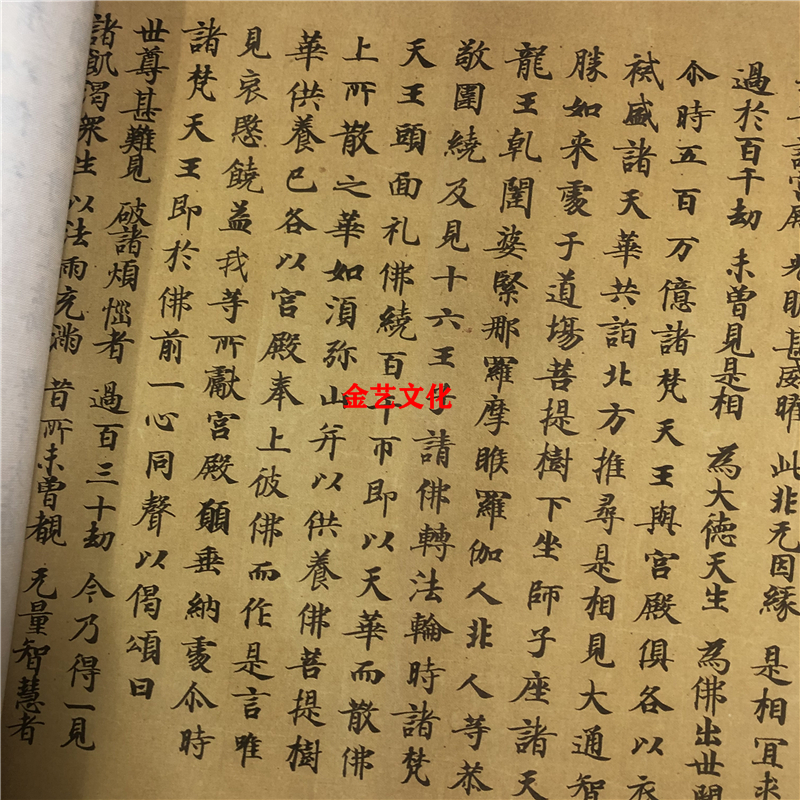 諸宮殿 光明甚威曜 此非无因緣 是相冝求
過於百千劫 未曾見是相 為大德天生 為佛出世間
尒時五百万億諸梵天王與宮殿俱各以衣
祴盛諸天華共詣北方推尋是相見大通智
勝如来處于道場菩提樹下坐師子座諸天
龍王乹闥婆緊那羅摩睺羅伽人非人等恭
敬圍繞及見十六王子請佛轉法輪時諸梵
天王頭面礼佛繞百千帀即以天華而散佛
上所散之華如湏弥山并以供養佛菩提樹
華供養已各以宮殿奉上彼佛而作是言唯
見哀愍饒益我等所獻宮殿願垂納處尒時
諸梵天王即於佛前一心同聲以偈頌曰
世尊甚難見 破諸煩惱者 過百三十劫 今乃得一見
諸飢渴衆生 以法雨充滿 昔所未曾覩 无量智慧者
金艺文化